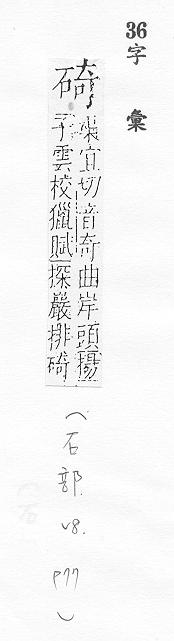 36字彙
碕
渠宜切音奇曲岸頭揚
子雲校獵賦探嚴排碕
(石部 v8. p77)